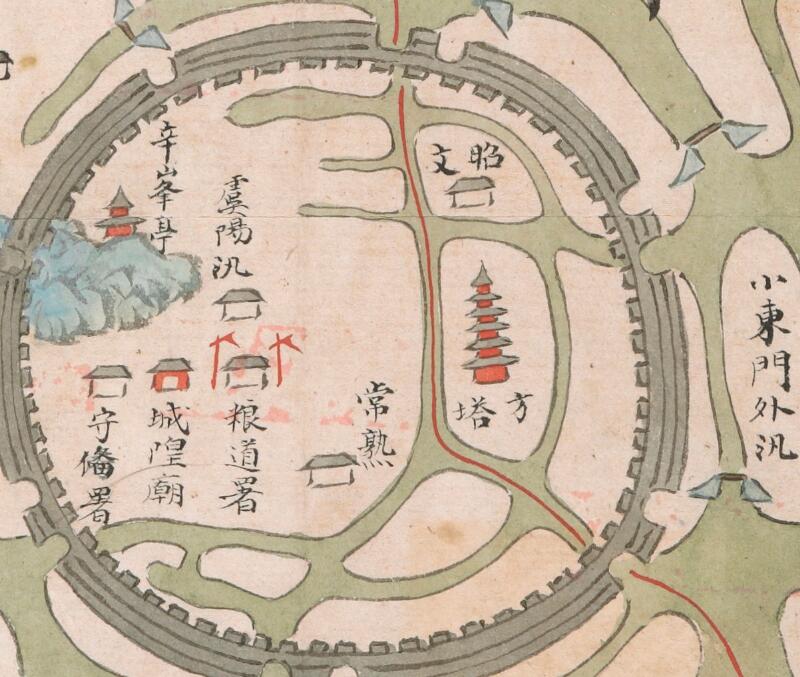 昭文
方塔
小東門外汛
常熟
虞陽汛
粮道署
辛峯亭
城隍廟
守備署